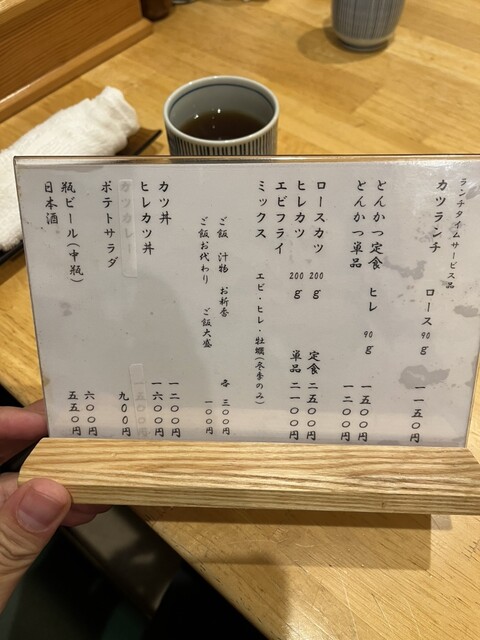 ランチタイムサービス品
カツランチ ロース90g 一一五〇円
とんかつ定食 ヒレ90g 一五〇〇円
とんかつ単品 一二〇〇円
ロースカツ200g 定食 二五〇〇円
ヒレカツ200g 単品 二一〇〇円
エビフライ
ミックス エビ・ヒレ・牡蠣(冬季のみ)
ご飯 汁物 お新香 各 三〇〇円
ご飯お代わり ご飯大盛 一〇〇円
カツ丼 一二〇〇円
ヒレカツ丼 一六〇〇円
カツカレー 一五〇〇円
ポテトサラダ 九〇〇円
瓶ビール(中瓶) 六〇〇円
日本酒 五五〇円